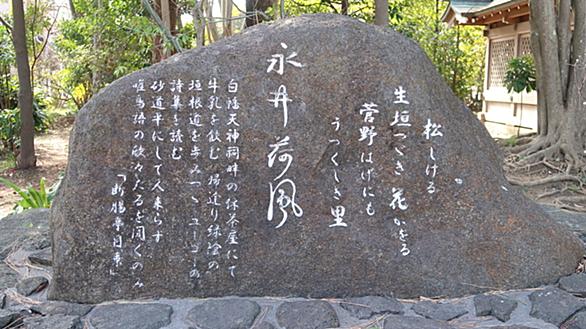 松しける
生垣つゝき花かをる
菅野はげにも
うつくしき里
永井荷風
白幡天神祠畔の休茶屋にて
牛乳を飲む 帰途緑陰の
垣根道を歩みつゝユーゴーの
詩集を読む
砂道平にして人来らず
唯鳥語の欣々たるを聞くのみ
「断腸亭日乗」